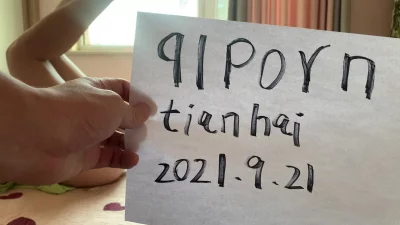 91porn
tianhai
2021.9.21